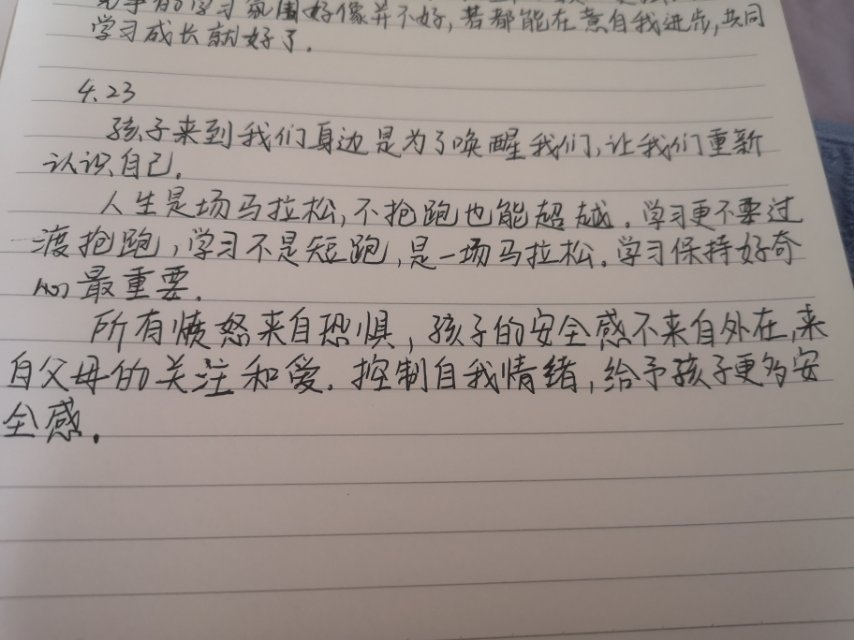 竞争的学习氛围好像并不好,若都能在意自我进步,共同
学习成长就好了.
4.23
孩子来到我们身边是为了唤醒我们,让我们重新
认识自己.
人生是场马拉松,不抢跑也能超越.学习更不要过
渡抢跑,学习不是短跑,是一场马拉松.学习保持好奇
心最重要.
所有愤怒来自恐惧,孩子的安全感不来自外在,来
自父母的关注和爱.控制自我情绪,给予孩子更多安
全感.